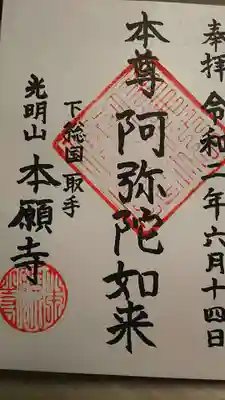 奉拝 令和一年六月十四日
本尊 阿弥陀如来
下総国 取手
光明山 本願寺